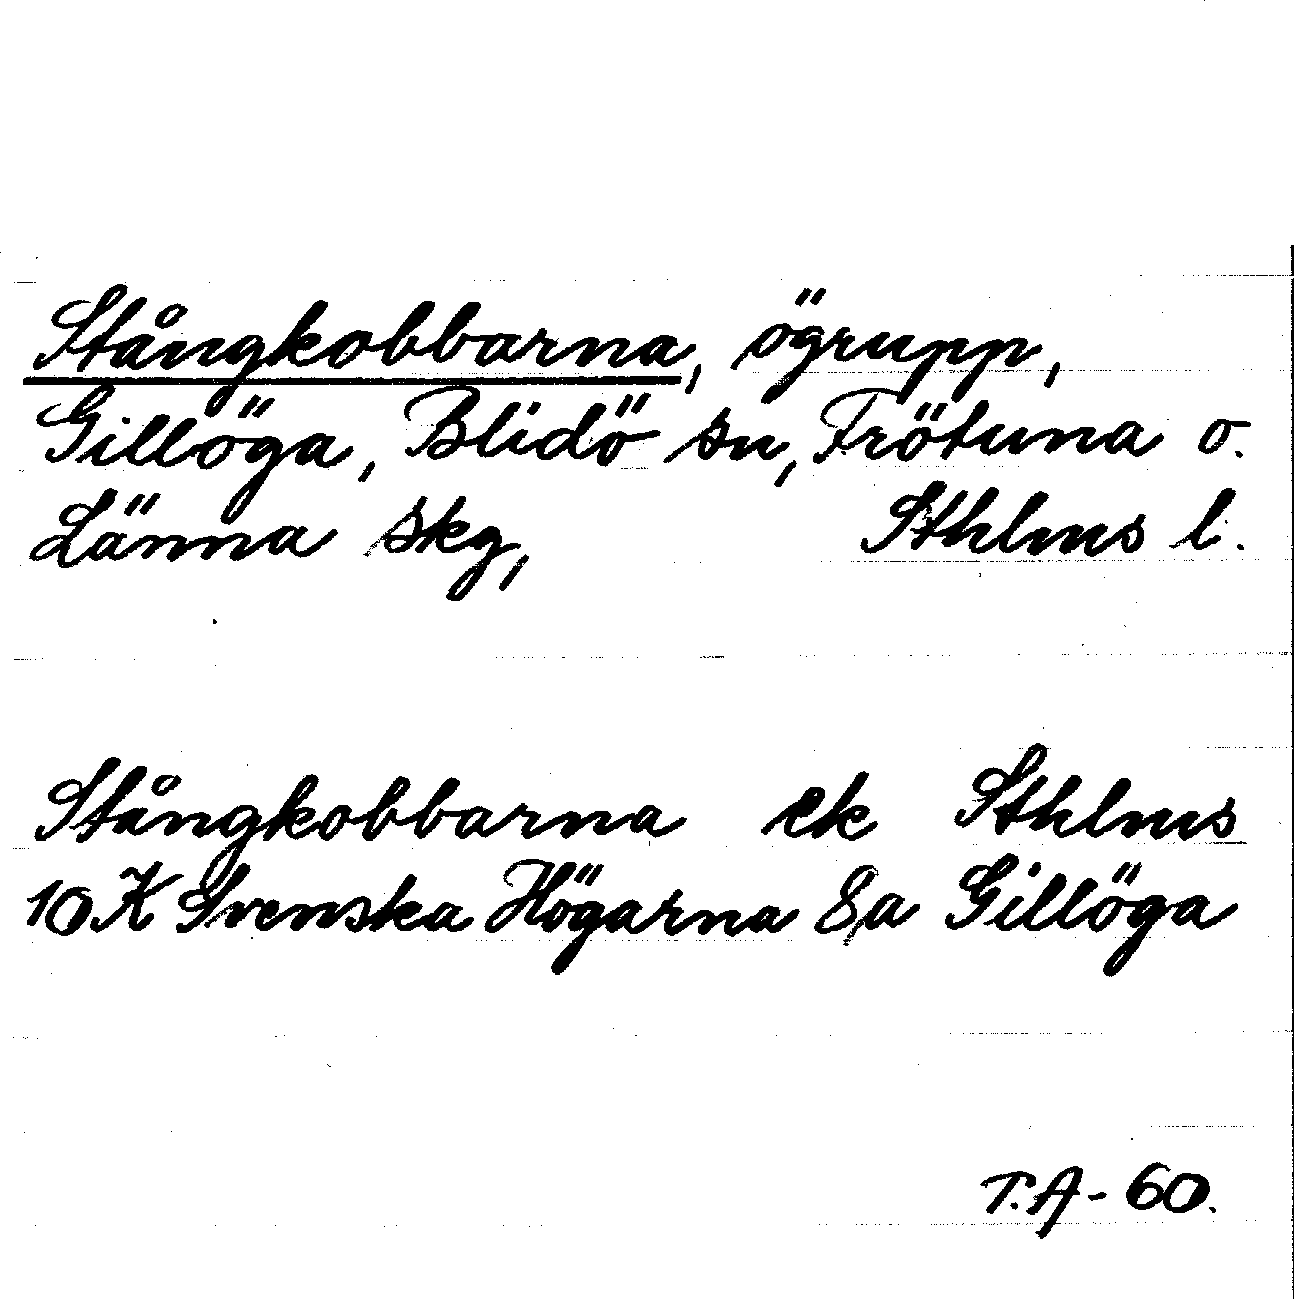 Stångkobbarna, ögrupp,
Gillöga, Blidö sn, Frötuna o.
Länna skg, Sthlms l.
Stångkobbarna ek Sthlms
10K Svenska Högarna 8a Gillöga
T.A-60.